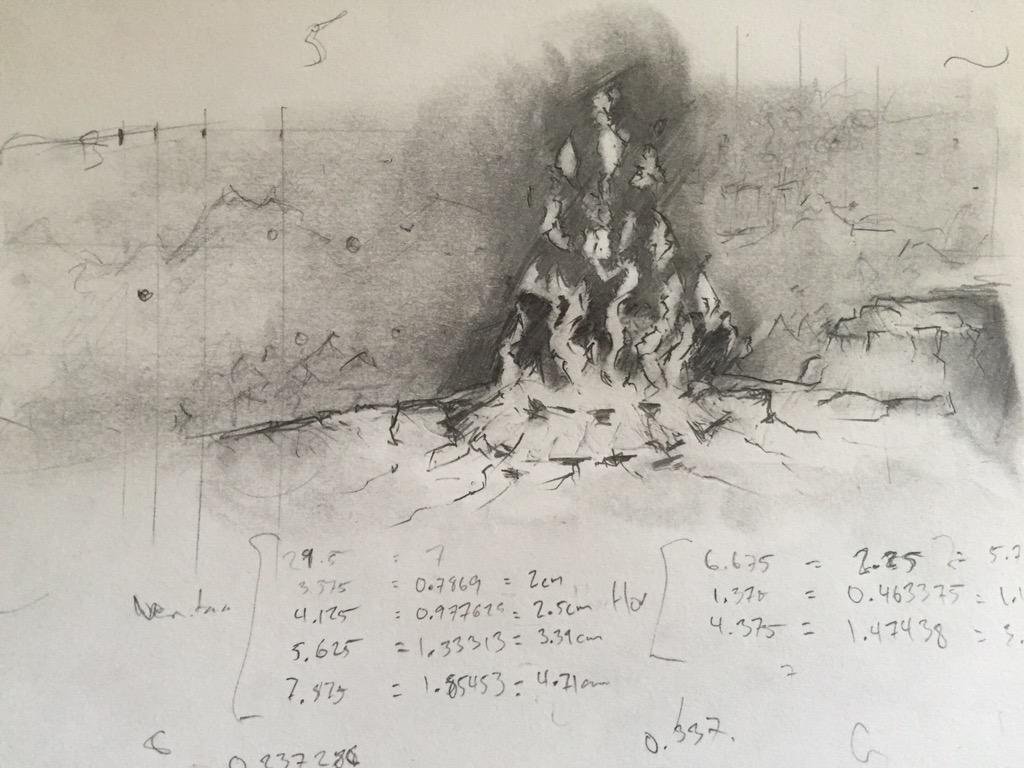 5
29.5 = 7
3.375 = 0.7869 = 2cm
4.125 = 0.977625 = 2.5cm
5.625 = 1.33313 = 3.39cm
7.875 = 1.85453 = 4.71cm
Hor
6.675 = 2.25 = 5.7
1.376 = 0.463375 = 1.1
4.375 = 1.47438 = 3.
0.237288
0.337.